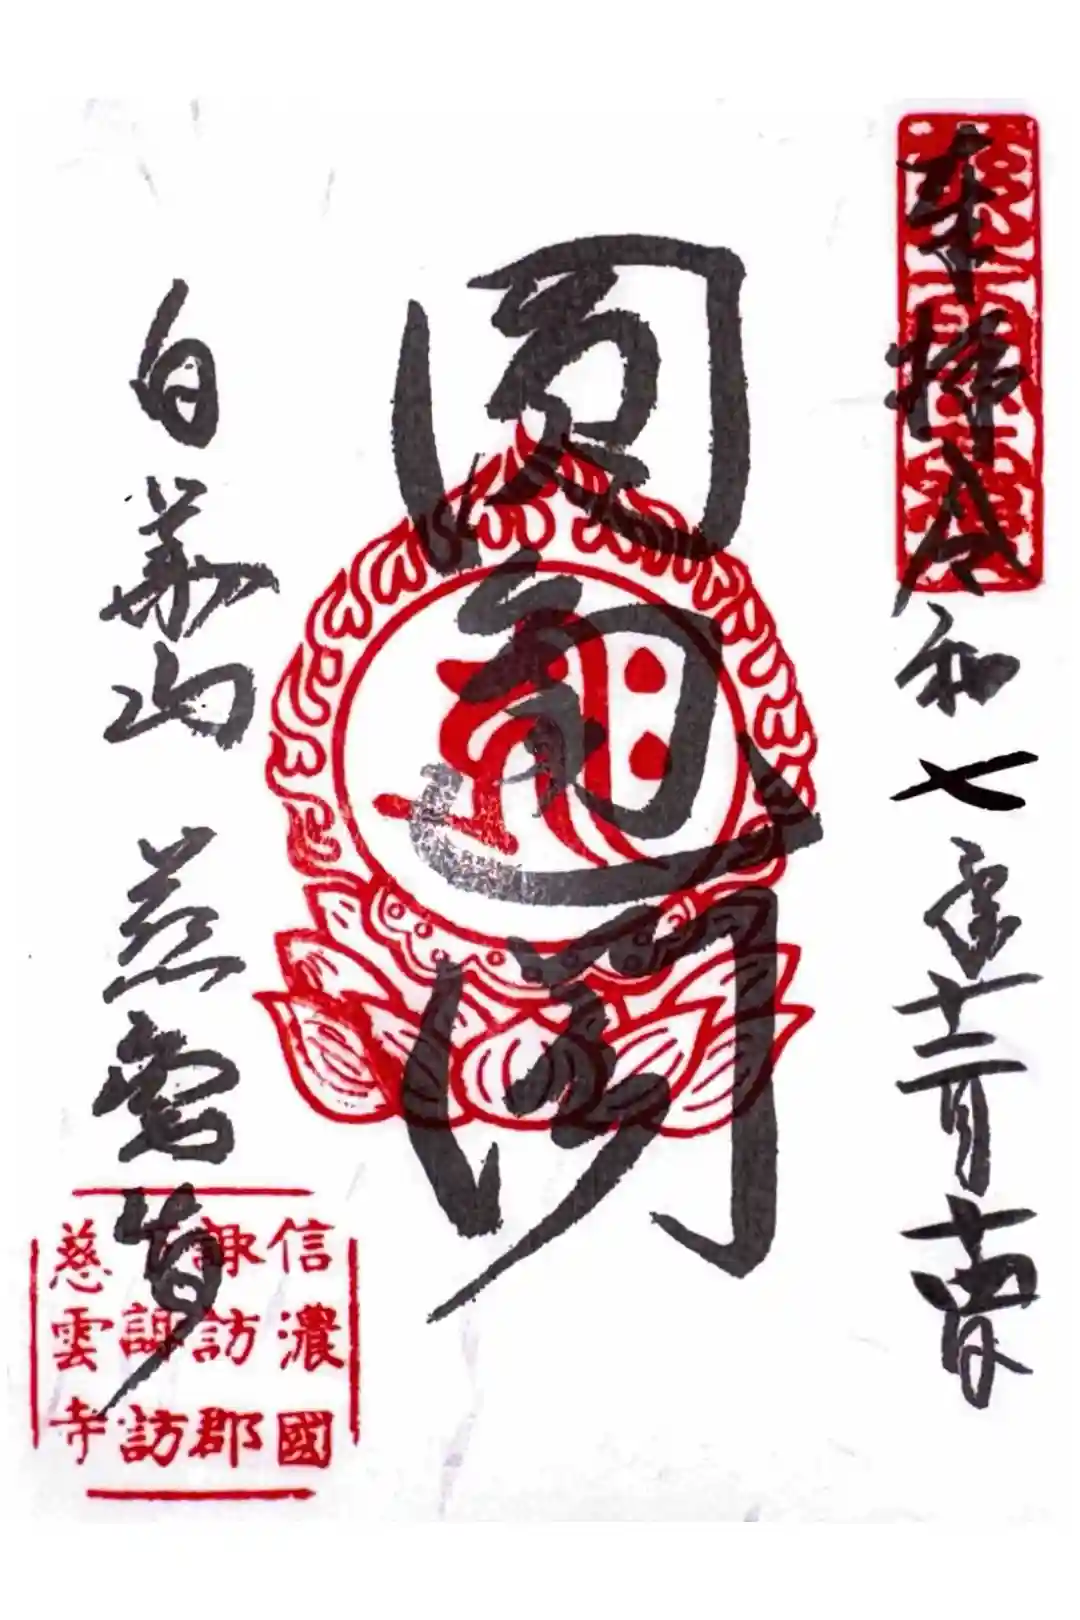 奉拝 令和七歳十二月十四日
圓通閣
白華山 慈雲寺
信濃國
諏訪郡
下諏訪
慈雲寺